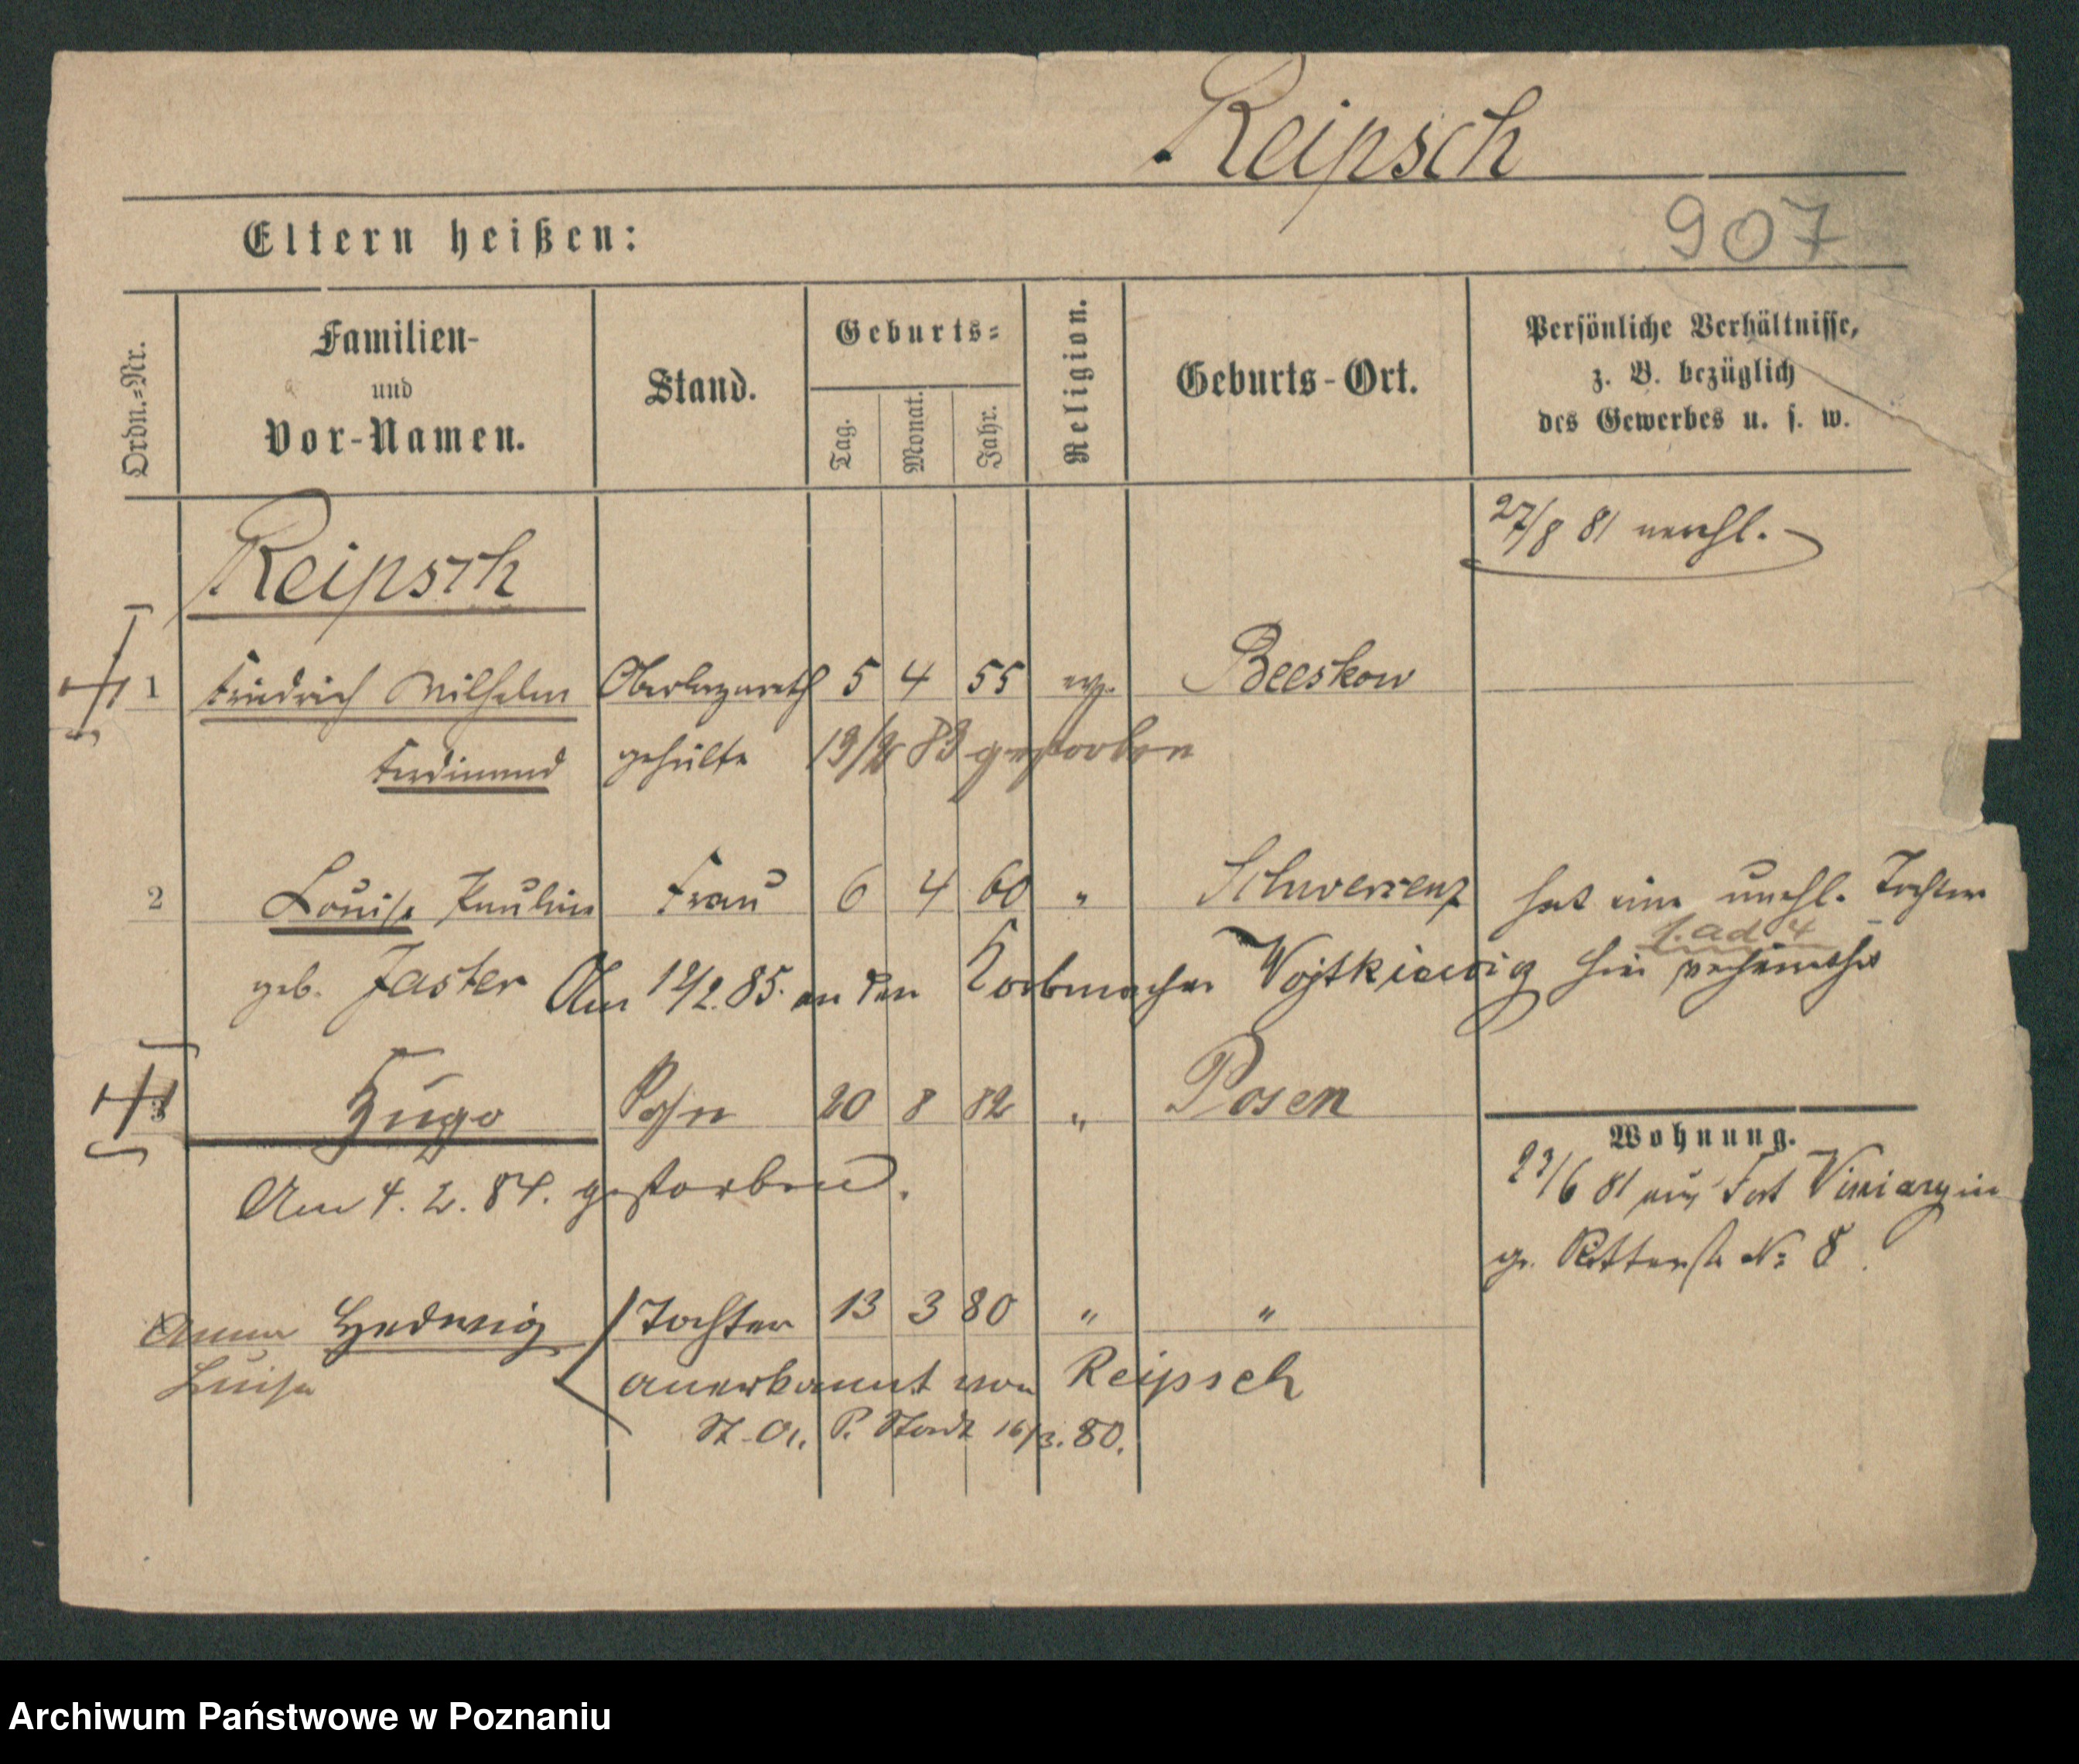 Reipsch
907
Eltern heißen:
Ordn.-Nr.
Familien-
und
Vor-Namen.
Stand.
Geburts-
Tag.
Monat.
Jahr.
Religion.
Geburts-Ort.
Persönliche Verhältnisse,
z. B. bezüglich
des Gewerbes u. s. w.
27/8 81 verehl.
Reipsch
1 Friedrich Wilhelm Oberlazareth 5 4 55 evg. Beeskow
Ferdinand gehülfe 19/2 83 gestorben
2 Louise Pauline Frau 6 4 60 " Schwersenz hat eine unehl. Tochter
f. ad 4
geb. Jaster Am 12/2.85. an den Korbmacher Wojtkiewicz hier verheirathet
3 Hugo Sohn 20 8 82 " Posen
Am 4. 2. 84. gestorben.
Wohnung.
23/6 81 aus Fort Viniary in
gr. Ritterstr No 8.
Anna Hedwig Tochter 13 3 80 " "
Luise anerkannt von Reipsch
St. A. P. Stadt 16/3. 80.
Archiwum Państwowe w Poznaniu